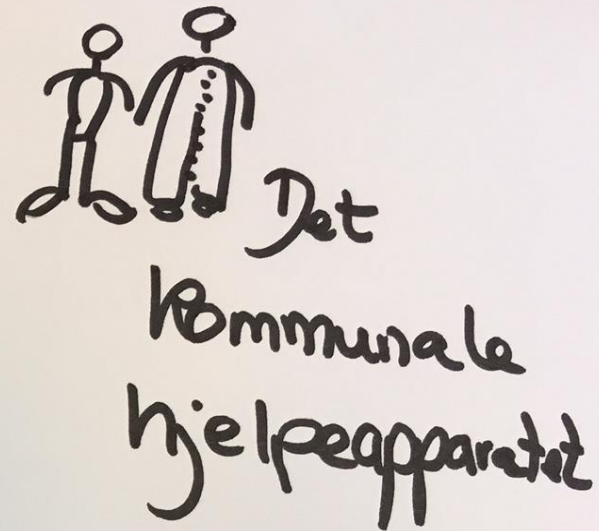 Det
kommunale
hjelpeapparatet